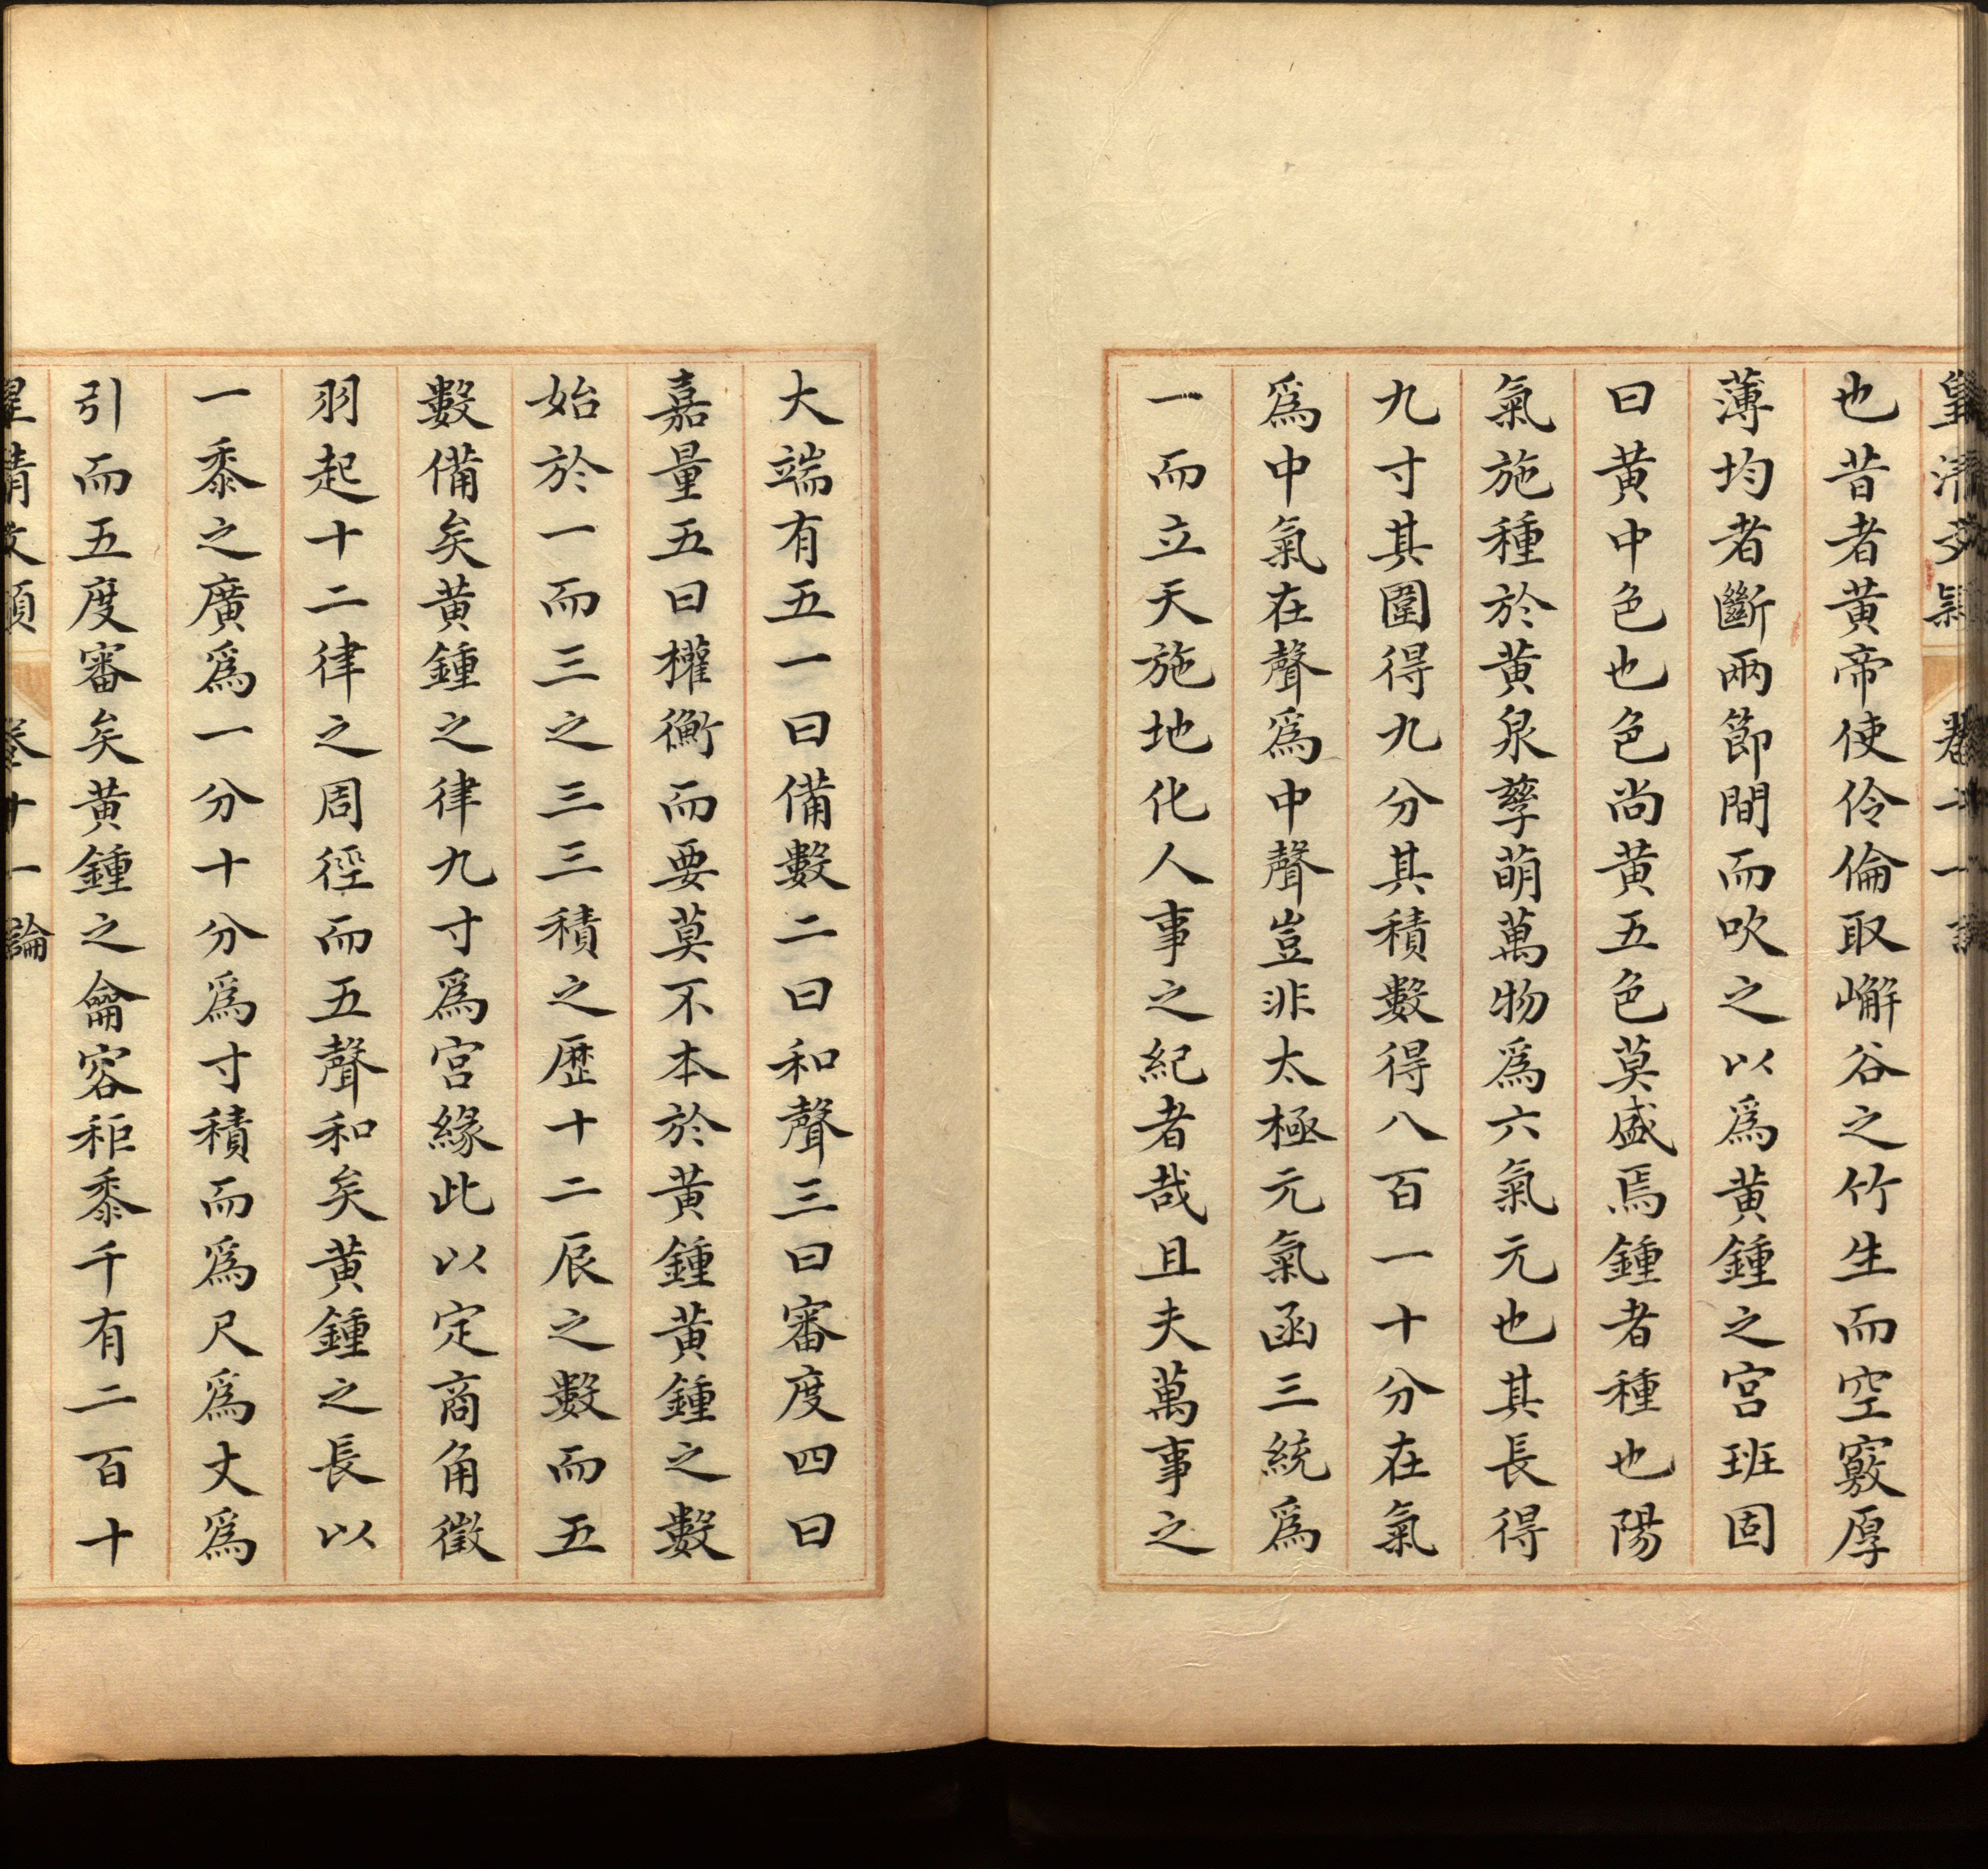 皇清文穎　卷十一　論
也昔者黃帝使伶倫取嶰谷之竹生而空竅厚
薄均者斷兩節間而吹之以爲黃鍾之宮班固
曰黃中色也色尚黃五色莫盛焉鍾者種也陽
氣施種於黃泉孳萌萬物爲六氣元也其長得
九寸其圍得九分其積數得八百一十分在氣
爲中氣在聲爲中聲豈非太極元氣函三統爲
一而立天施地化人事之紀者哉且夫萬事之
大端有五一曰備數二曰和聲三曰審度四曰
嘉量五曰權衡而要莫不本於黃鍾黃鍾之數
始於一而三之三三積之歷十二辰之數而五
數備矣黃鍾之律九寸爲宮緣此以定商角徵
羽起十二律之周徑而五聲和矣黃鍾之長以
一黍之廣爲一分十分爲寸積而爲尺爲丈爲
引而五度審矣黃鍾之龠容秬黍千有二百十
皇清文穎　卷十一　論